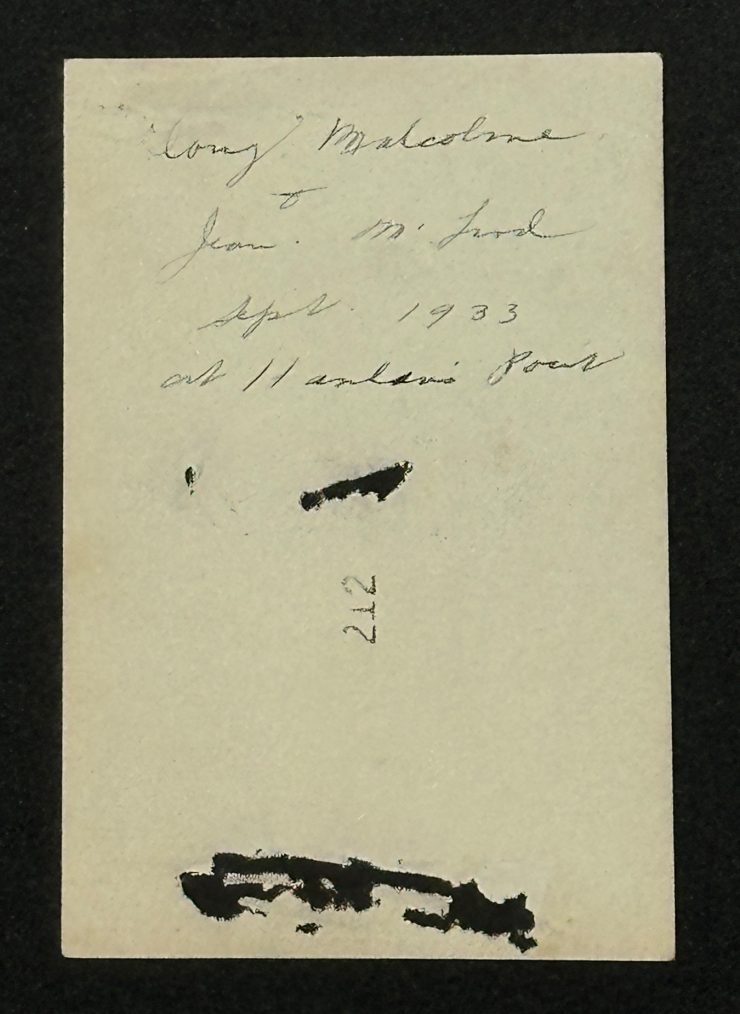 "Cony" Malcolme
&
Jean. Mc Leod
Sept. 1933
at Hanlan's Point
212